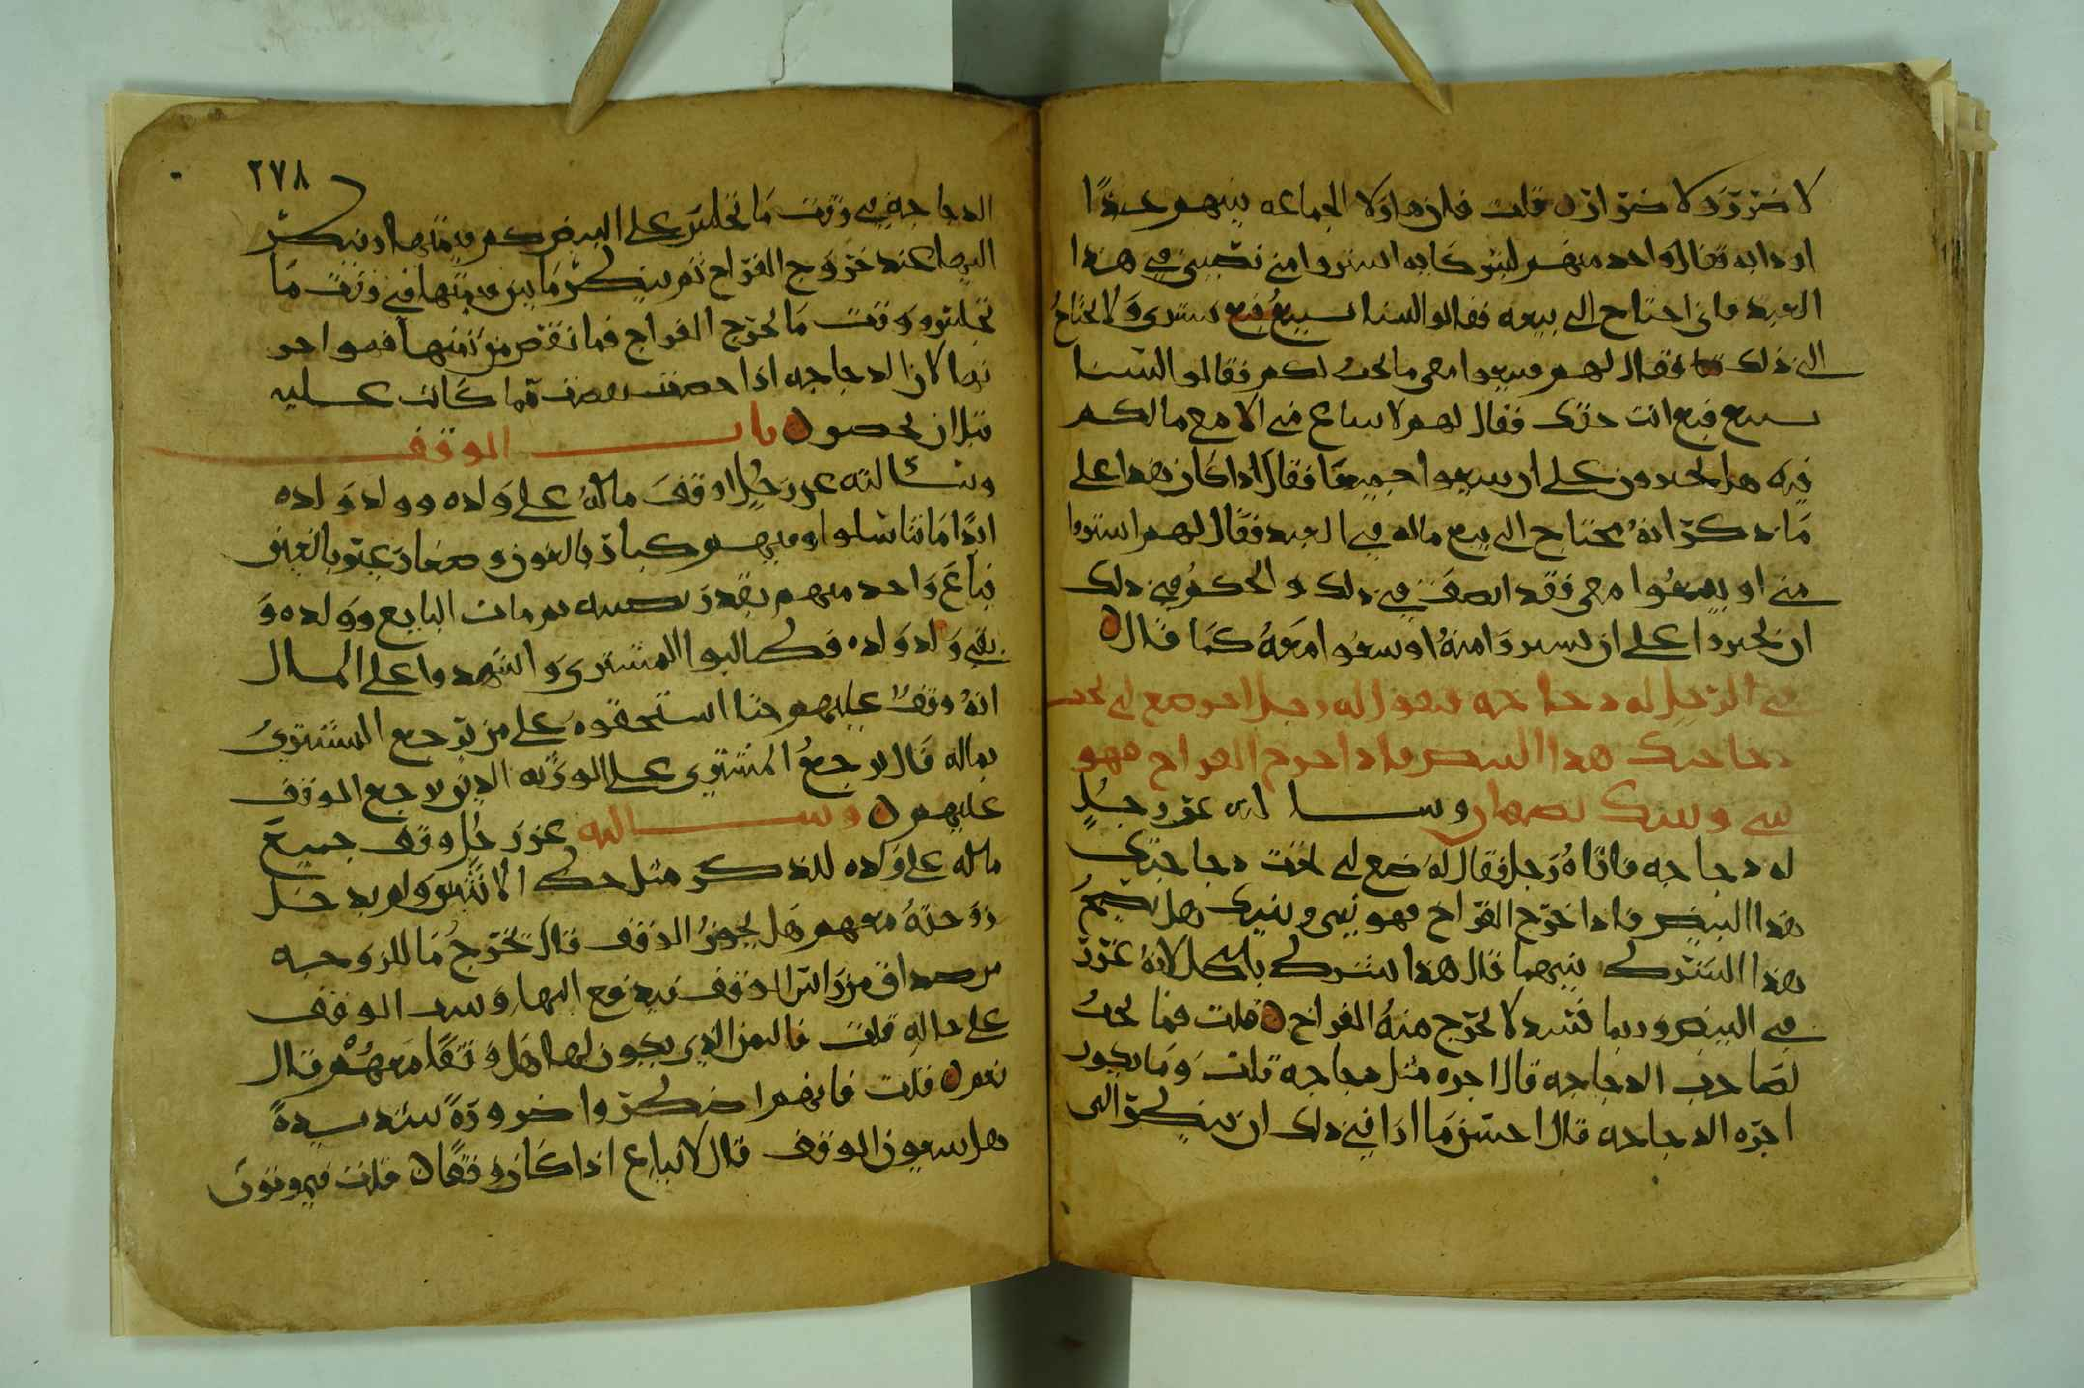 لا ضرر ولا ضرار ن قلت فان هاولا الجماعه بينهم عبدًا
او دابه فقال واحد منهم لشركايه اشتروا مني نصيبي في هذا
العبد فاني احتاج الى بيعه فقالوا لسنا نبيع فبع نشتري ولا نحتاج
الى ذلك فقال لهم فبيعوا معي ما يجب لكم فقالوا لسنا
نبيع فبع انت حقك فقال لهم لا يباع مني الا مع مالكم
فيه هل يجبرون على ان يبيعوا جميعًا فقال اذا كان هذا على
ما يذكر انهُ يحتاج الى بيع ماله في العبد فقال لهم اشتروا
مني او بيعُوا معي فقد انصف في ذلك والحكم في ذلك
ان يجبروا على ان يشتروا منهُ او يبيعوا معهُ كما قال ن
في الرجل له دجاجه فيقول له رجل اخر ضع لي تحت
دجاجتك هذا البيض فاذا اخرج الفراخ فهو
بيني وبينك نصفان وسالته عن رجلٍ
له دجاجه فاتاهُ رجل فقال له ضع لي تحت دجاجتك
هذا البيض فاذا خرج الفراخ فهو بيني وبينك هل يصح
هذا الشرك بينهما قال هذا شرك باطل لانهُ غرر
في البيض وربما فسد لا يخرج منهُ الفراخ ن قلت فما يجبُ
لصاحب الدجاجه قال اجره مثل دجاجه قلت وما يكون
اجره الدجاجه قال احسن ما اذا في ذلك ان ينظر الى
٢٧٨
الدجاجه في وقت ما تجلس على البيض كم قيمتها وينظر
اليها عند خروج الفراخ ثم ينظر ما بين قيمتها في وقت ما
تجلس ووقت ما يخرج الفراخ فما نقص من ثمنها فهو اجر
تها لان الدجاجه اذا حضنت نقصت عما كانت عليه
قبل ان تحضن ن باب الوقف
وسالته عن رجُل اوقف ماله على ولده وولد ولده
ابدًا ما تناسلوا وفيهم كبار بالغون وصغار غير بالغين
فباع واحد منهم بقدر نصيبه ثم مات البايع وولده و
بقي ولد ولده فطالبوا المشتري واشهدوا على المال
انهُ وقف عليهم حتا استحقوه على من يرجع المشتري
بماله قال يرجعُ المشتري على الورثه الذين لا جمع الوقف
عليهم ن وسالته عن رجُل وقف جميع
ماله على ولده للذكر مثل حظ الانثيين ولم يدخل
زوجتهُ معهم هل يجوزُ الوقف قال تخرج ما للزوجه
من صداق من راس الوقف فيدفع اليها ويبقى الوقف
على حاله قلت فالثمن الذي يكون لها هل وقفًا معهم قال
نعم ن قلت فانهم اضطروا ضرورةً شديدةً
هل يبيعون الوقف قال لا يباع اذا كان وقفًا ن قلت فيموتون